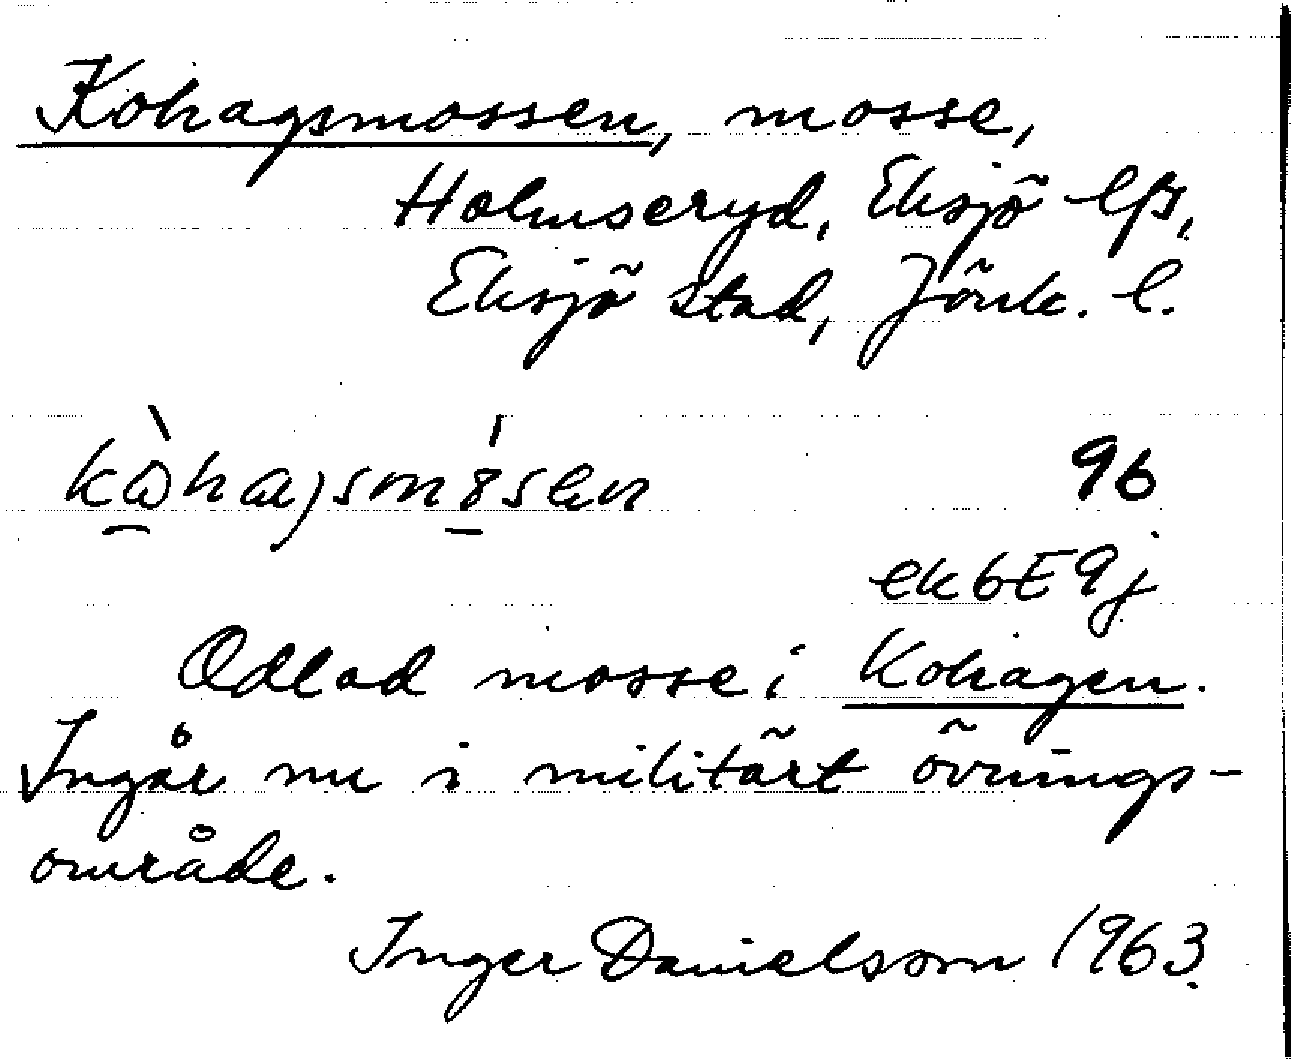 Kohagsmossen, mosse,
Holmseryd, Eksjö lfs,
Eksjö stad, Jönk. l.
96
ek6E9j
Odlad mosse i Kohagen.
Ingår nu i militärt övnings-
område.
Inger Danielsson 1963.